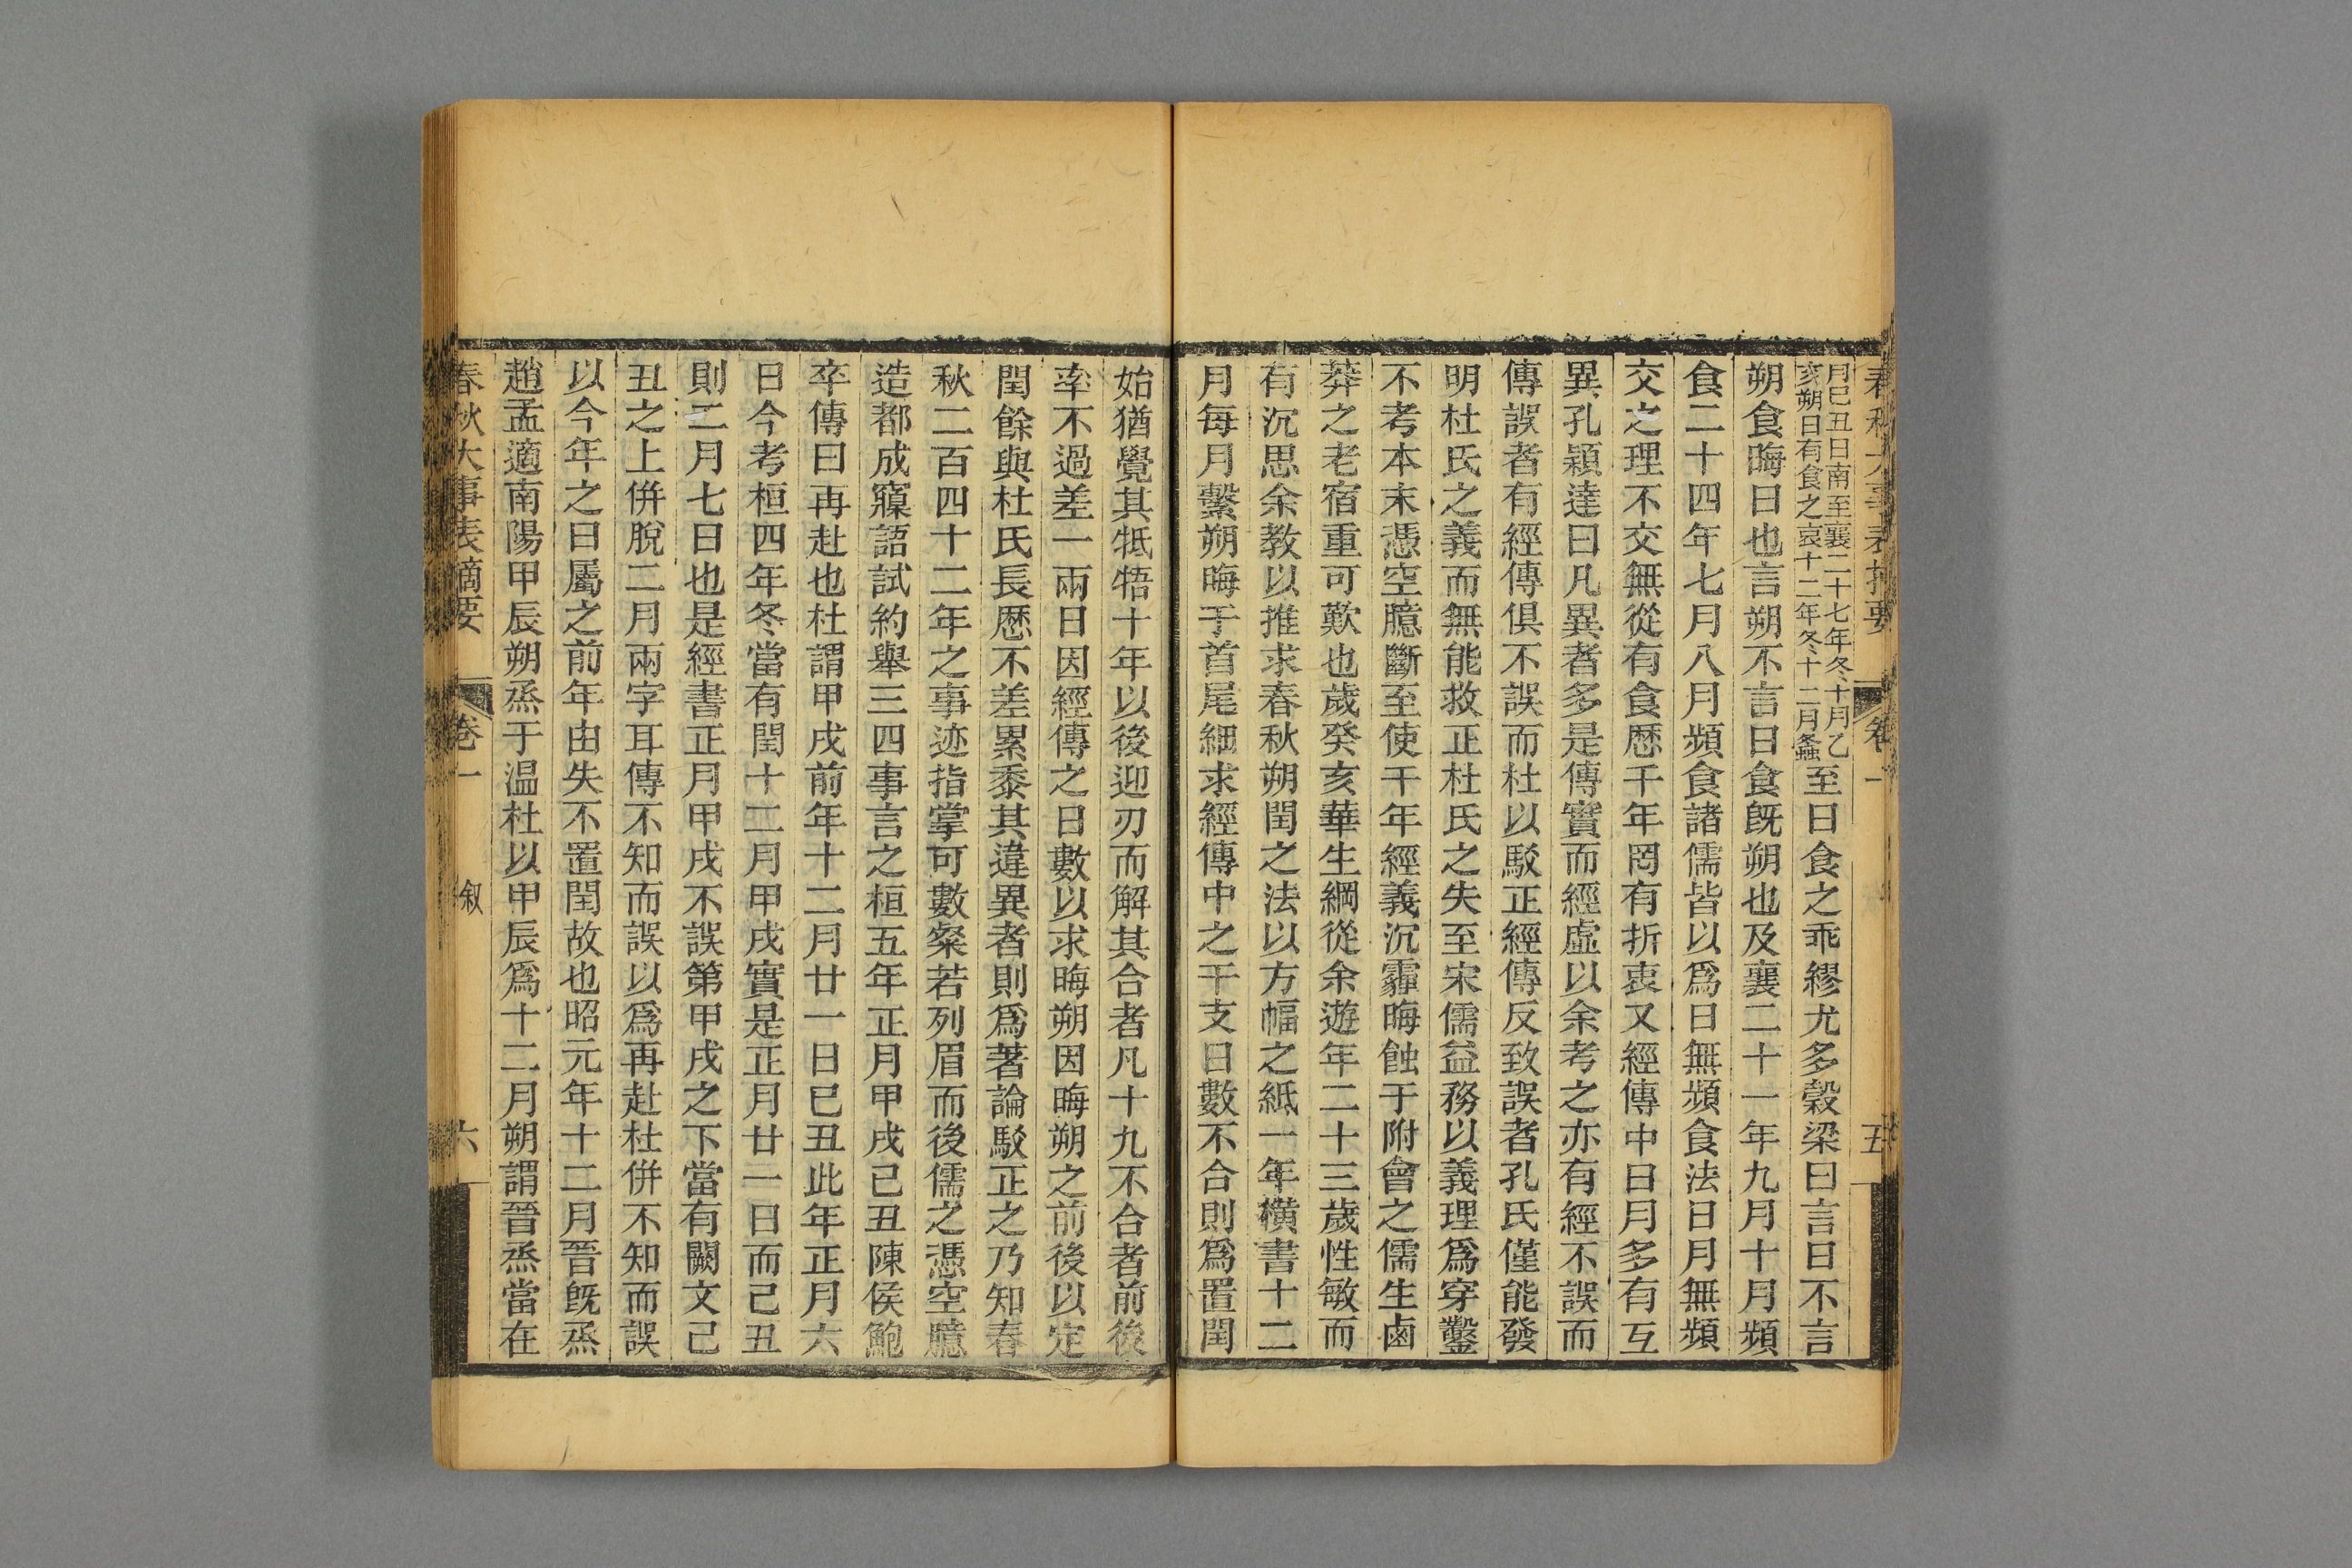 春秋大事表摘要 卷一 五
月巳丑日南至襄二十七年冬十月乙
亥朔日有食之哀十二年冬十二月螽
至日食之乖繆尤多穀梁曰言日不言
朔食晦日也言朔不言日食旣朔也及襄二十一年九月十月頻
食二十四年七月八月頻食諸儒皆以爲日無頻食法日月無頻
交之理不交無從有食歷千年罔有折衷又經傳中日月多有互
異孔穎達曰凡異者多是傳實而經虛以余考之亦有經不誤而
傳誤者有經傳俱不誤而杜以駁正經傳反致誤者孔氏僅能發
明杜氏之義而無能救正杜氏之失至宋儒益務以義理爲穿鑿
不考本末憑空臆斷至使千年經義沉霾晦蝕于附會之儒生鹵
莽之老宿重可歎也歲癸亥華生綱從余遊年二十三歲性敏而
有沉思余教以推求春秋朔閏之法以方幅之紙一年橫書十二
月每月繫朔晦于首尾細求經傳中之干支日數不合則爲置閏
始猶覺其牴牾十年以後迎刃而解其合者凡十九不合者前後
率不過差一兩日因經傳之日數以求晦朔因晦朔之前後以定
閏餘與杜氏長歷不差累黍其違異者則爲著論駁正之乃知春
秋二百四十二年之事迹指掌可數粲若列眉而後儒之憑空臆
造都成寱語試約舉三四事言之桓五年正月甲戌已丑陳侯鮑
卒傳曰再赴也杜謂甲戌前年十二月廿一日巳丑此年正月六
日今考桓四年冬當有閏十二月甲戌實是正月廿一日而己丑
則二月七日也是經書正月甲戌不誤第甲戌之下當有闕文己
丑之上併脫二月兩字耳傳不知而誤以爲再赴杜併不知而誤
以今年之日屬之前年由失不置閏故也昭元年十二月晉旣烝
趙孟適南陽甲辰朔烝于温杜以甲辰爲十二月朔謂晉烝當在
春秋大事表摘要 卷一 叙 六